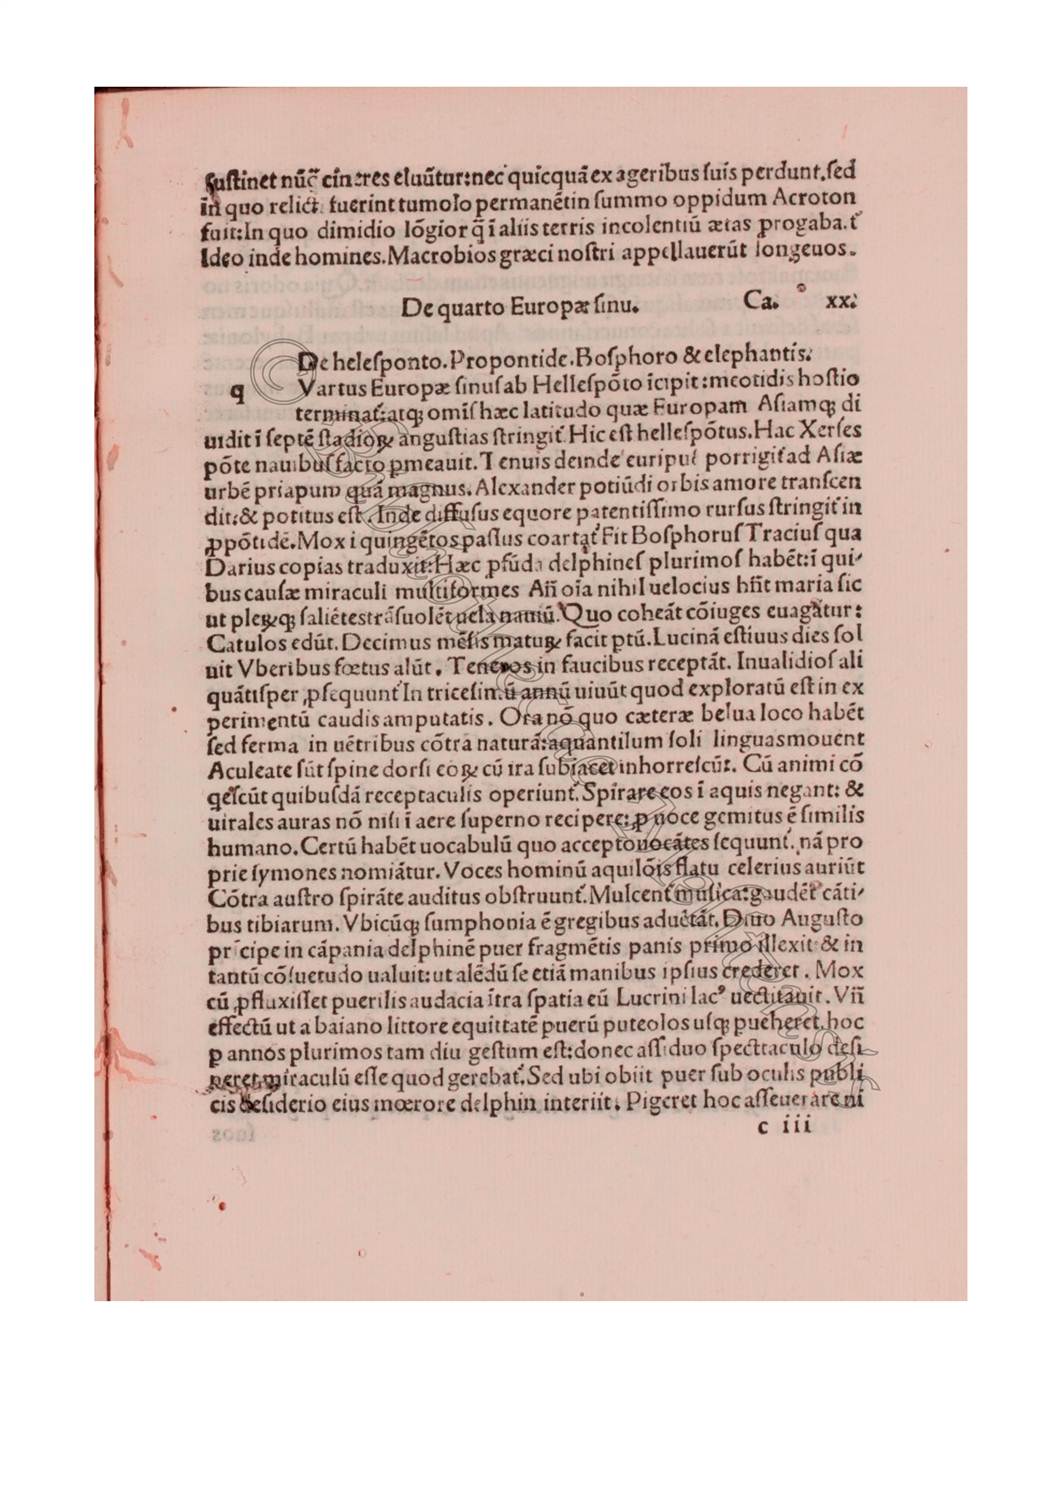 suſtinet nūc̄ cineres eluūtur:nec quicquā ex ageribus ſuis perdunt.ſed
in quo relict fuerint tumolo permanēt in ſummo oppidum Acroton
fuit:In quo dimidio lōgior q̄ ī aliis terris incolentiū ætas ꝓrogaba.t̉
Ideo inde homines.Macrobios græci noſtri appellauerūt longeuos.
De quarto Europæ ſinu. Ca. xx.
De heleſponto.Propontide.Boſphoro & elephantis.
q Vartus Europæ ſinuſ ab Helleſpōto īcipit:meotidis hoſtio
terminat̉:atqꝫ omīſ hæc latitudo quæ Europam Aſiamqꝫ di
uidit ī ſeptē ſtadioꝝ anguſtias ſtringit̉ Hic eſt helleſpōtus.Hac Xerſes
pōte nauibuſ facto ꝑmeauit.Tenuis deinde euripuſ porrigit̉ ad Aſiæ
urbē priapum quā magnus.Alexander potiūdi orbis amore tranſcen
dit:& potitus eſt.Inde diffuſus equore patentiſſimo rurſus ſtringit̉ in
ꝓpōtidē.Mox ī quingētos paſſus coartat̉ Fit Boſphoruſ Traciuſ qua
Darius copias traduxit:Hæc ꝓfūda delphineſ plurimoſ habēt:ī qui-
bus cauſæ miraculi multiformes An̄ oīa nihil uelocius hn̄t maria ſic
ut pleꝝqꝫ ſaliētes trāſuolēt uela nauiū.Quo coheāt cōiuges euagātur:
Catulos edūt.Decimus mēſis matuꝝ facit ꝑtū.Lucinā eſtiuus dies ſol
uit Vberibus fœtus alūt.Teneros in faucibus receptāt.Inualidioſ ali
quātiſper ꝓſequunt̉ In triceſimū annū uiuūt quod exploratū eſt in ex
perimentū caudis amputatis.Ora nō quo cæteræ belua loco habēt
ſed ferma in uētribus cōtra naturā:aquantilum ſoli linguas mouent
Aculeate ſūt ſpine dorſi eoꝝ cū ira ſubiacet inhorreſcūt.Cū animi cō
qeſcūt quibuſdā receptaculis operiunt̉.Spirare eos ī aquis negant:&
uirales auras nō niſi ī aere ſuperno recipere:ꝓ uoce gemitus ē ſimilis
humano.Certū habēt uocabulū quo accepto uocātes ſequunt̉.nā pro
prie ſymones nomiātur.Voces hominū aquilōis flatu celerius auriūt
Cōtra auſtro ſpirāte auditus obſtruunt̉.Mulcent̉ muſica:gaudēt cāti-
bus tibiarum.Vbicūqꝫ ſumphonia ē gregibus aduētāt.Diuo Auguſto
prīcipe in cāpania delphinē puer fragmētis panis primo illexit & in
tantū cōſuetudo ualuit:ut alēdū ſe etiā manibus ipſius crederet.Mox
cū ꝓfluxiſſet puerilis audacia ītra ſpatia eū Lucrini lacꝰ uectitauit.Vn̄
effectū ut a baiano littore equittatē puerū puteolos uſqꝫ pueheret.hoc
ꝑ annos plurimos tam diu geſtum eſt:donec aſſiduo ſpecttaculo deſi
neret miraculū eſſe quod gerebat̉.Sed ubi obiit puer ſub oculis publi
cis deſiderio eius mœrore delphin interiit.Pigeret hoc aſſeuerare ni
c iii